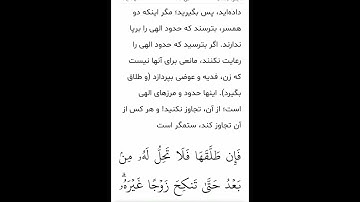 داده‌اید، پس بگیرید؛ مگر اینکه دو
همسر، بترسند که حدود الهی را برپا
ندارند. اگر بترسید که حدود الهی را
رعایت نکنند، مانعی برای آنها نیست
که زن، فدیه و عوضی بپردازد (و طلاق
بگیرد). اینها حدود و مرزهای الهی
است؛ از آن، تجاوز نکنید! و هر کس از
آن تجاوز کند، ستمگر است
فَإِن طَلَّقَهَا فَلَا تَحِلُّ لَهُۥ مِنۢ
بَعْدُ حَتَّىٰ تَنكِحَ زَوْجًا غَيْرَهُۥۗ